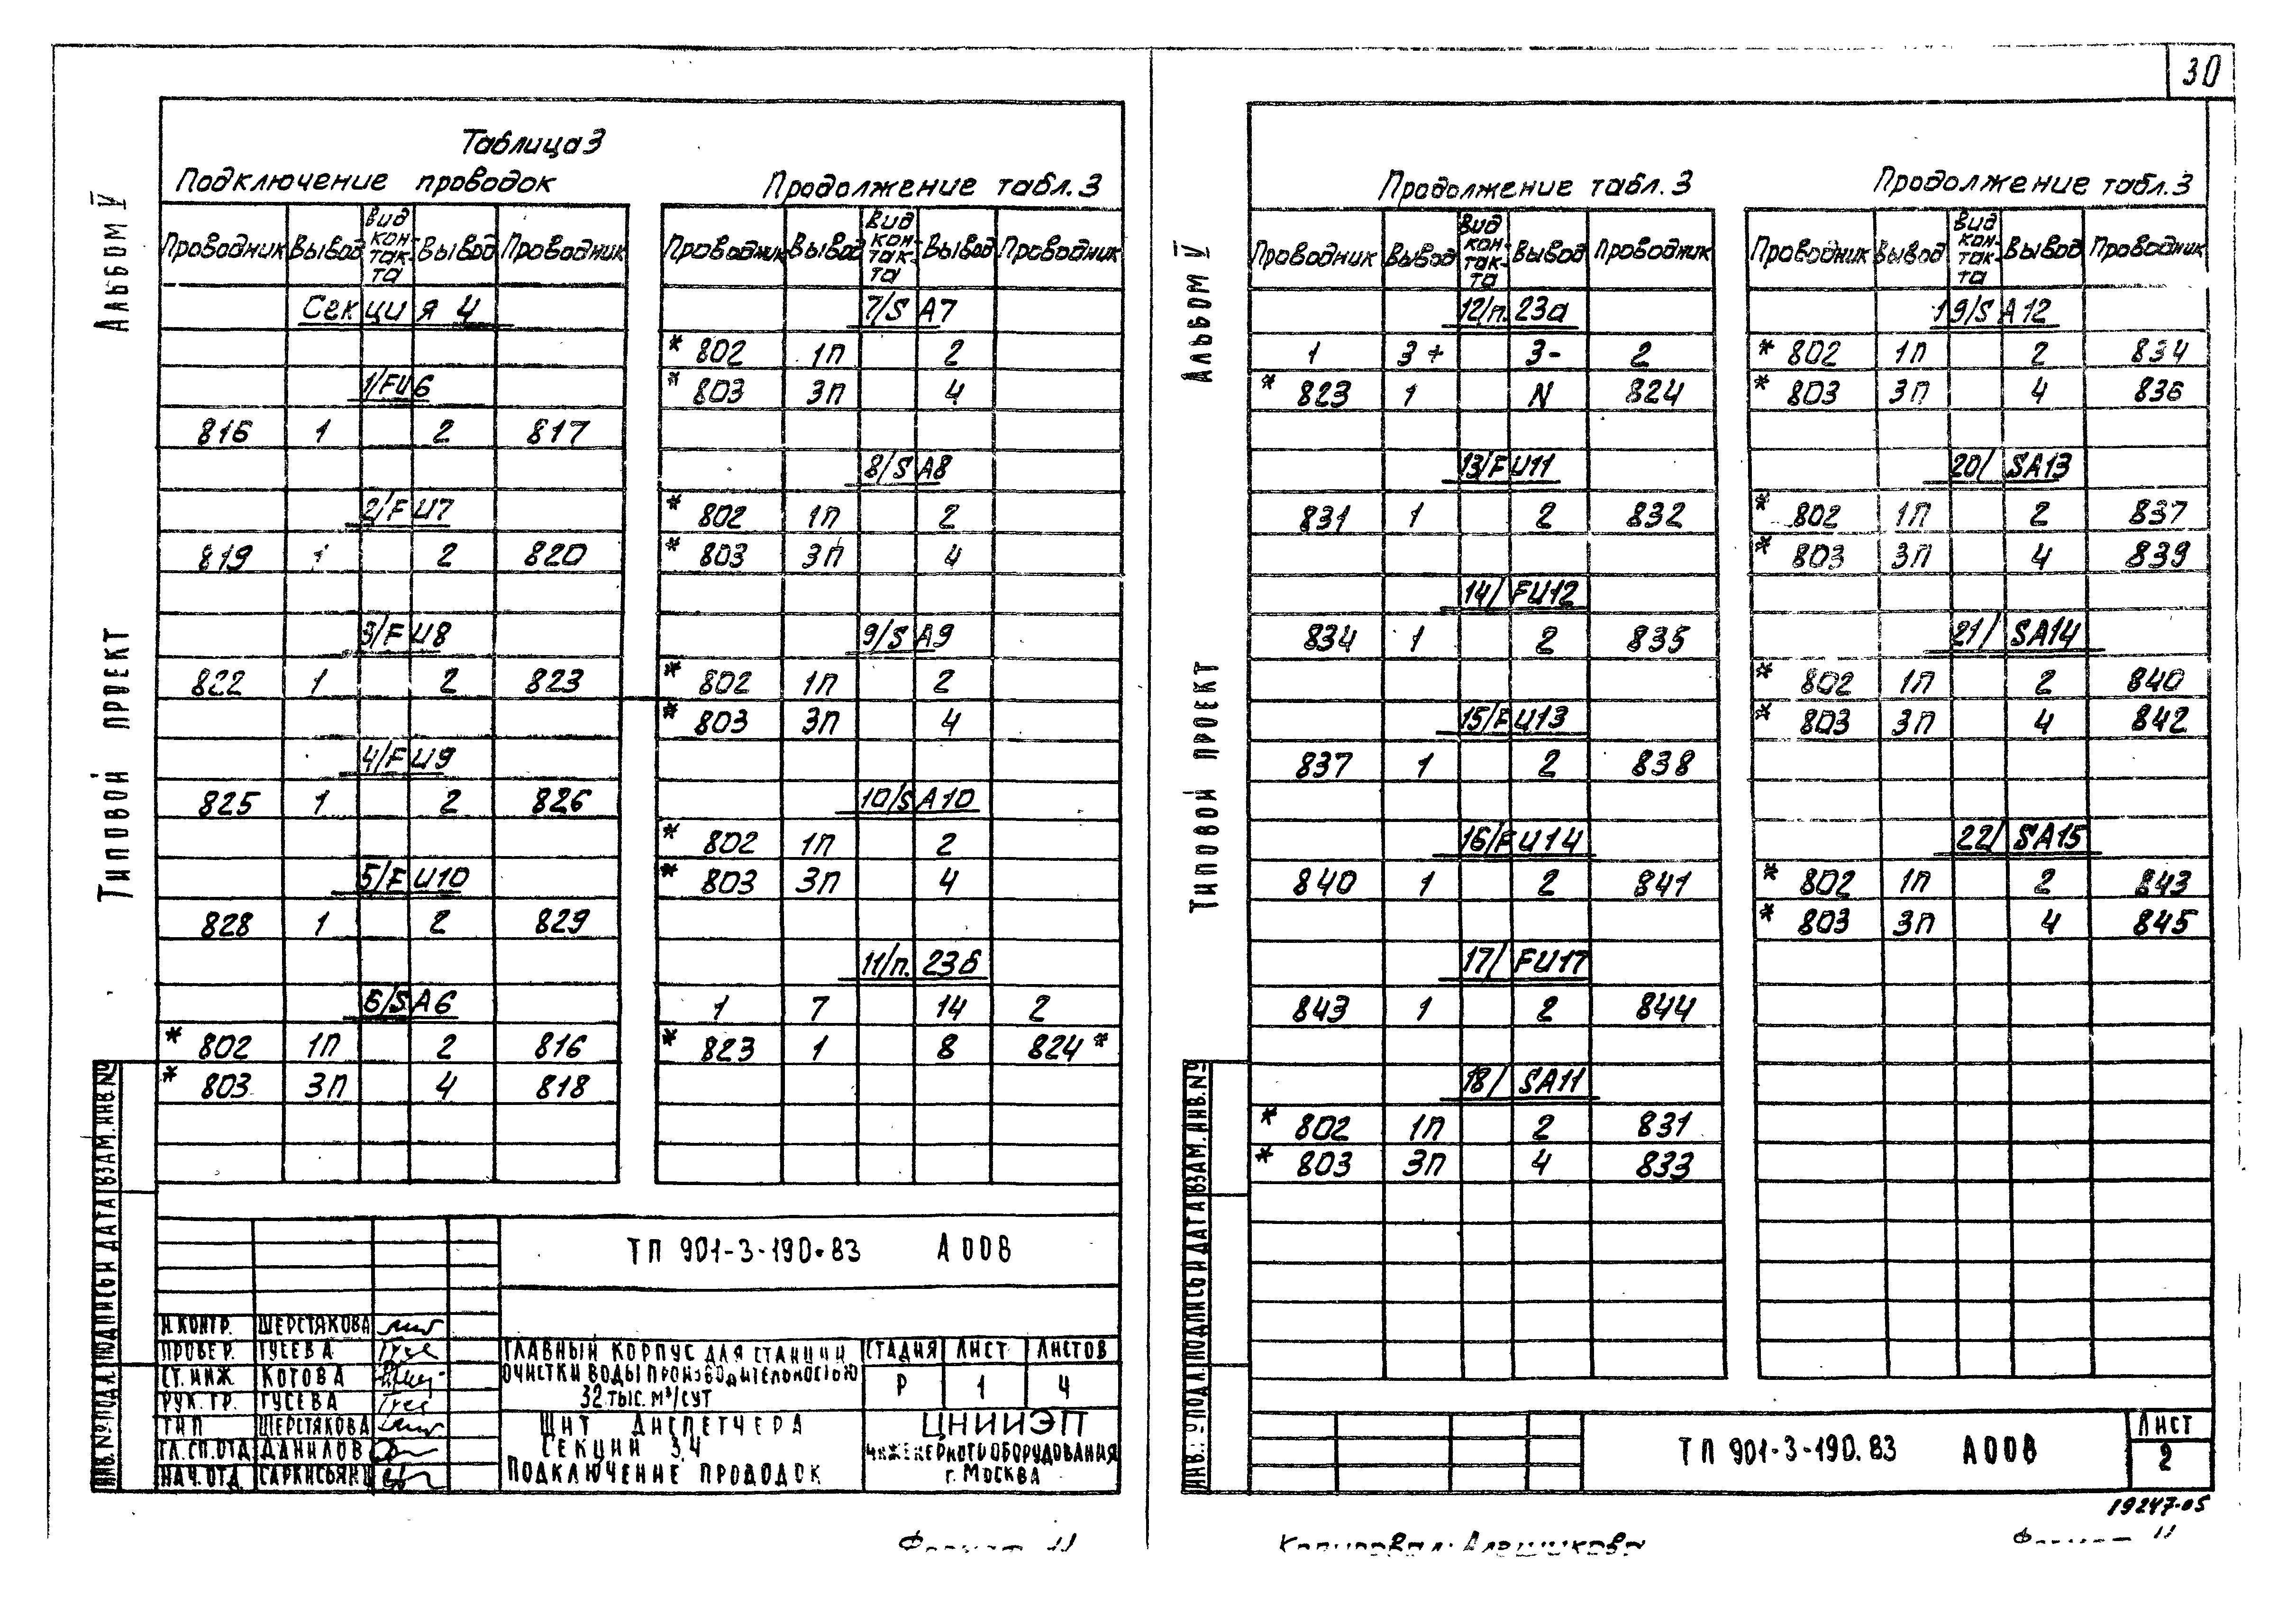 30
Альбом V
Типовой проект
Таблица 3
Подключение проводок
Проводник Вывод Вид контакта Вывод Проводник
Секция 4
1/FU6
816 1 2 817
2/FU7
819 1 2 820
3/FU8
822 1 2 823
4/FU9
825 1 2 826
5/FU10
828 1 2 829
6/SA6
* 802 1П 2 816
* 803 3П 4 818
Продолжение табл. 3
Проводник Вывод Вид контакта Вывод Проводник
7/SA7
* 802 1П 2
* 803 3П 4
8/SA8
* 802 1П 2
* 803 3П 4
9/SA9
* 802 1П 2
* 803 3П 4
10/SA10
* 802 1П 2
* 803 3П 4
11/п. 23б
1 7 14 2
* 823 1 8 824 *
ИНВ. № ПОДЛ. ПОДПИСЬ И ДАТА ВЗАМ. ИНВ. №
ТП 901-3-190.83 А008
Н.КОНТР. ШЕРСТЯКОВА
ПРОВЕР. ГУСЕВА
СТ. ИНЖ. КОТОВА
РУК. ГР. ГУСЕВА
ГИП ШЕРСТЯКОВА
ГЛ. СП. ОТД. ДАНИЛОВ
НАЧ. ОТД. САРКИСЬЯНЦ
ГЛАВНЫЙ КОРПУС ДЛЯ СТАНЦИИ
ОЧИСТКИ ВОДЫ ПРОИЗВОДИТЕЛЬНОСТЬЮ
32 ТЫС. М³/СУТ
СТАДИЯ ЛИСТ ЛИСТОВ
Р 1 4
ЩИТ ДИСПЕТЧЕРА
СЕКЦИИ 3,4
ПОДКЛЮЧЕНИЕ ПРОВОДОК
ЦНИИЭП
ИНЖЕНЕРНОГО ОБОРУДОВАНИЯ
г. МОСКВА
Формат 11
Альбом V
Типовой проект
Продолжение табл. 3
Проводник Вывод Вид контакта Вывод Проводник
12/п. 23а
1 3+ 3- 2
* 823 1 N 824
13/FU11
831 1 2 832
14/FU12
834 1 2 835
15/FU13
837 1 2 838
16/FU14
840 1 2 841
17/FU17
843 1 2 844
18/SA11
* 802 1П 2 831
* 803 3П 4 833
Продолжение табл. 3
Проводник Вывод Вид контакта Вывод Проводник
19/SA12
* 802 1П 2 834
* 803 3П 4 836
20/SA13
* 802 1П 2 837
* 803 3П 4 839
21/SA14
* 802 1П 2 840
* 803 3П 4 842
22/SA15
* 802 1П 2 843
* 803 3П 4 845
ИНВ. № ПОДЛ. ПОДПИСЬ И ДАТА ВЗАМ. ИНВ. №
ТП 901-3-190.83 А008
ЛИСТ
2
19247-05
Копировал:
Формат 11